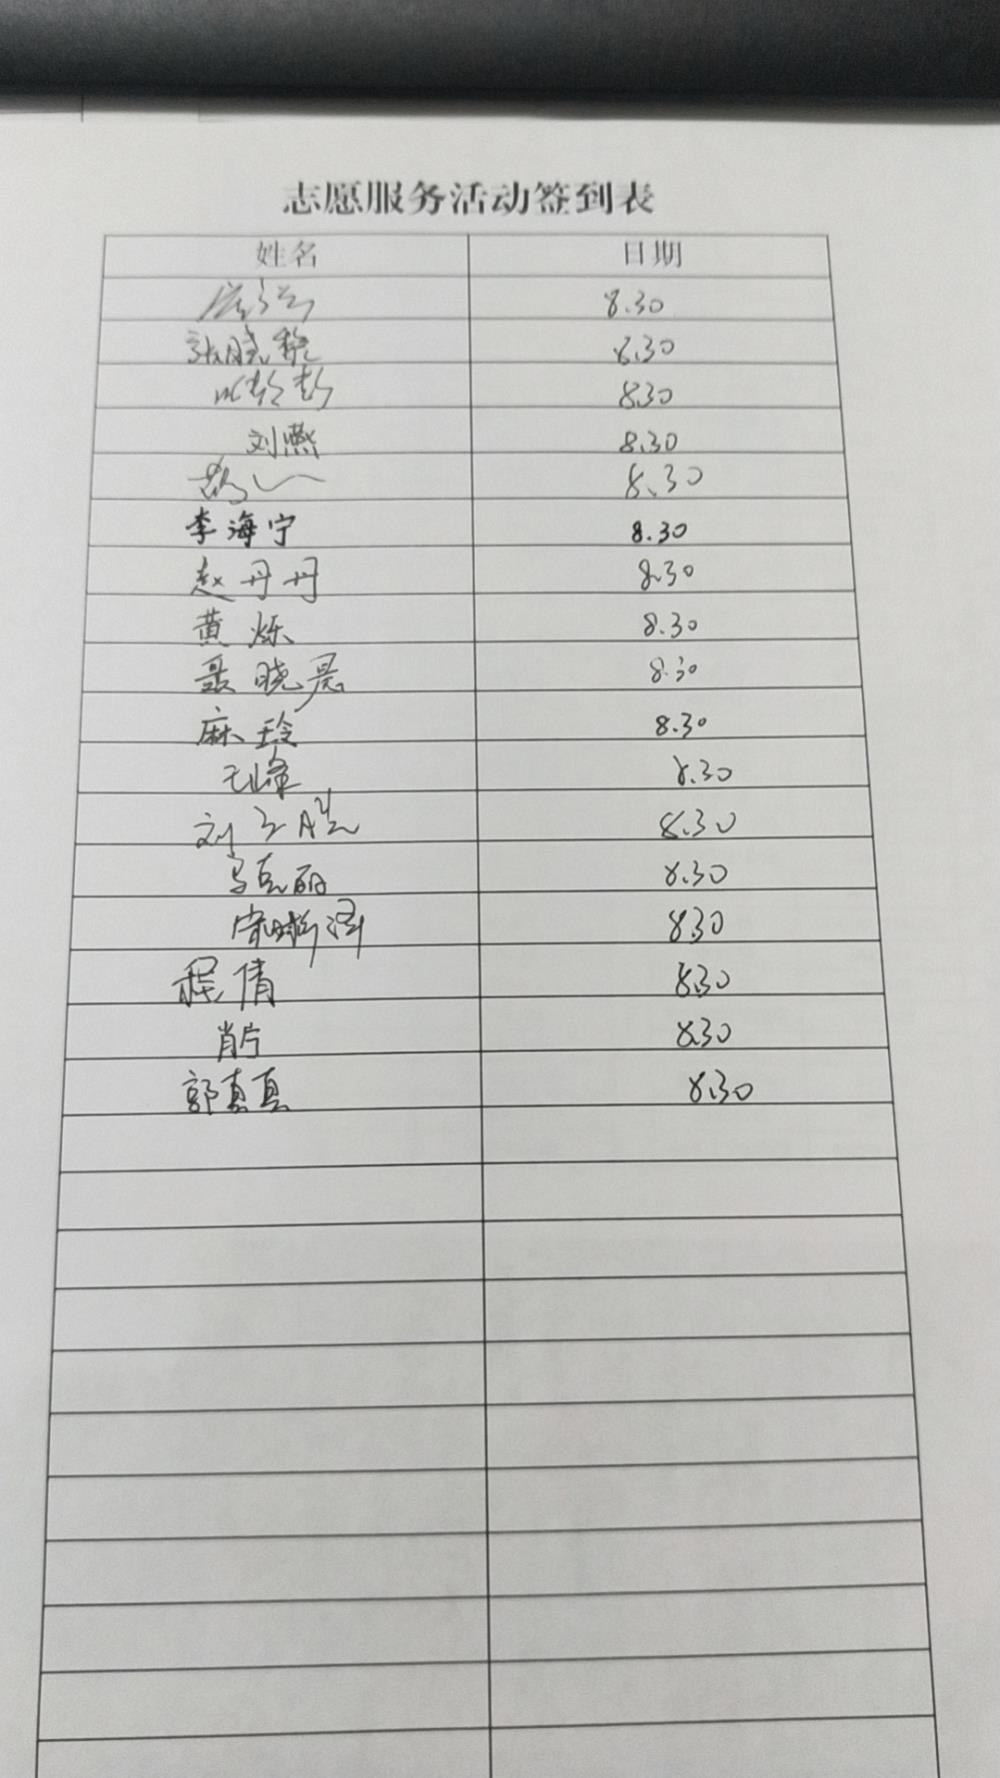 志愿服务活动签到表
姓名 日期
8.30
张晓艳 8.30
8.30
刘燕 8.30
8.30
李海宁 8.30
赵丹丹 8.30
黄烁 8.30
聂晓晨 8.30
麻玲 8.30
王峰 8.30
刘 8.30
马克丽 8.30
8.30
程倩 8.30
肖 8.30
郭真真 8.30